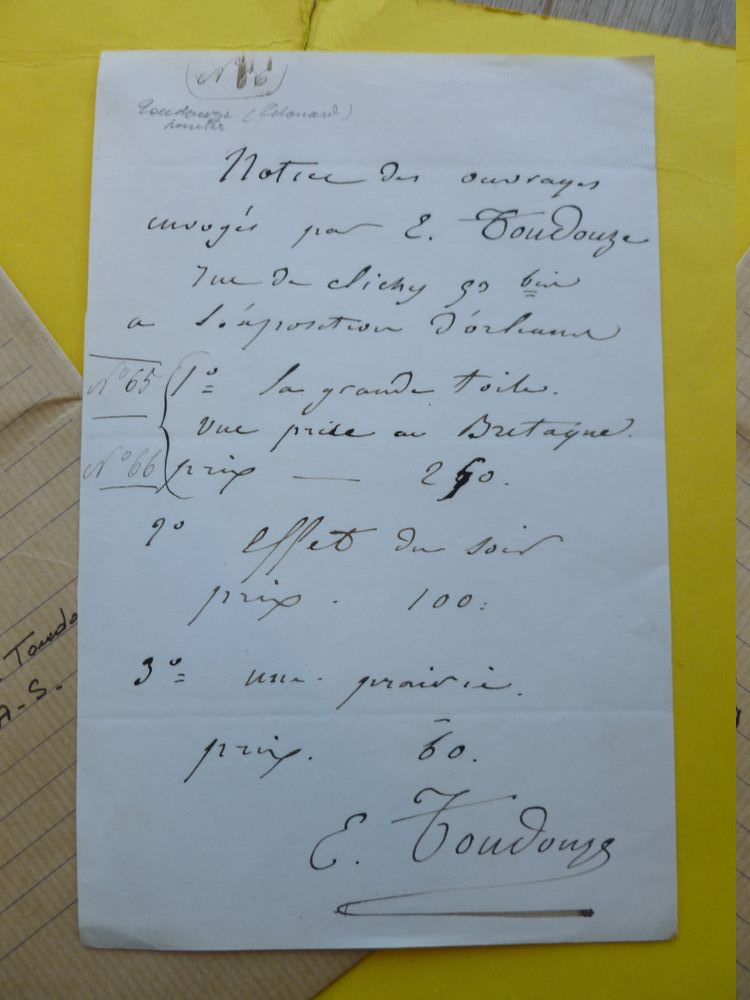 N° 66
Toudouze (Edouard)
peintre
Notice des ouvrages
envoyés par E. Toudouze
rue de clichy 50 bis
a L'éxposition D'orleans
N° 65
1° la grande toile.
vue prise en Bretagne.
N° 66
prix — 250.
2° effet du soir
prix. 100.
3° une prairie.
prix. 60.
E. Toudouze
Toudo
A.S.